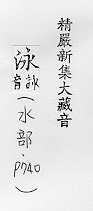 精嚴新集大藏音
泳
音詠
(水部·p740)